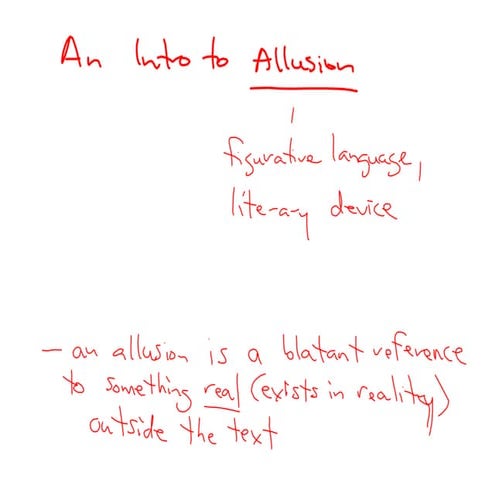 An Intro to Allusion
figurative language,
literary device
- an allusion is a blatant reference
to something real (exists in reality)
outside the text